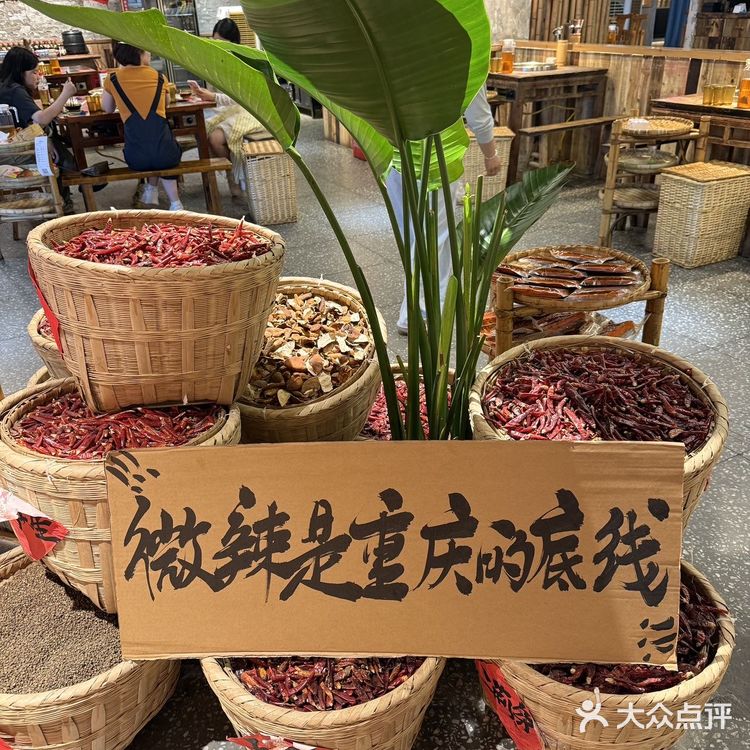 微辣是重庆的底线
大众点评